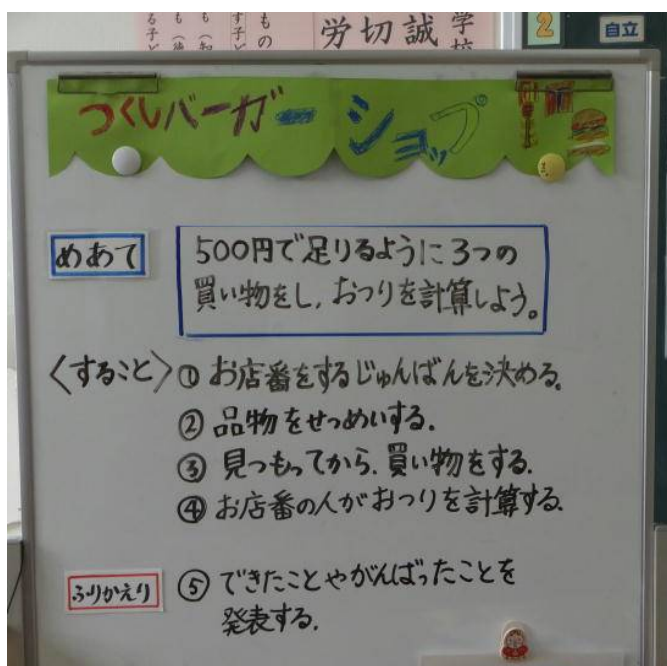 学校
誠
切
労
もの
す子ど
も（知
も（徳
る子ど
2
自立
つくしバーガーショップ
めあて
500円で足りるように3つの
買い物をし，おつりを計算しよう。
〈すること〉① お店番をするじゅんばんを決める。
② 品物をせつめいする．
③ 見つもってから．買い物をする．
④ お店番の人がおつりを計算する．
ふりかえり ⑤ できたことやがんばったことを
発表する．